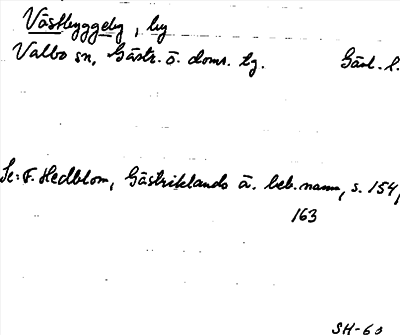 Västbyggeby, by
Valbo sn, Gästr. ö. doms. tg. Gävl. l.
Se: F. Hedblom, Gästriklands ä. beb.namn, s. 154,
163
SH-60